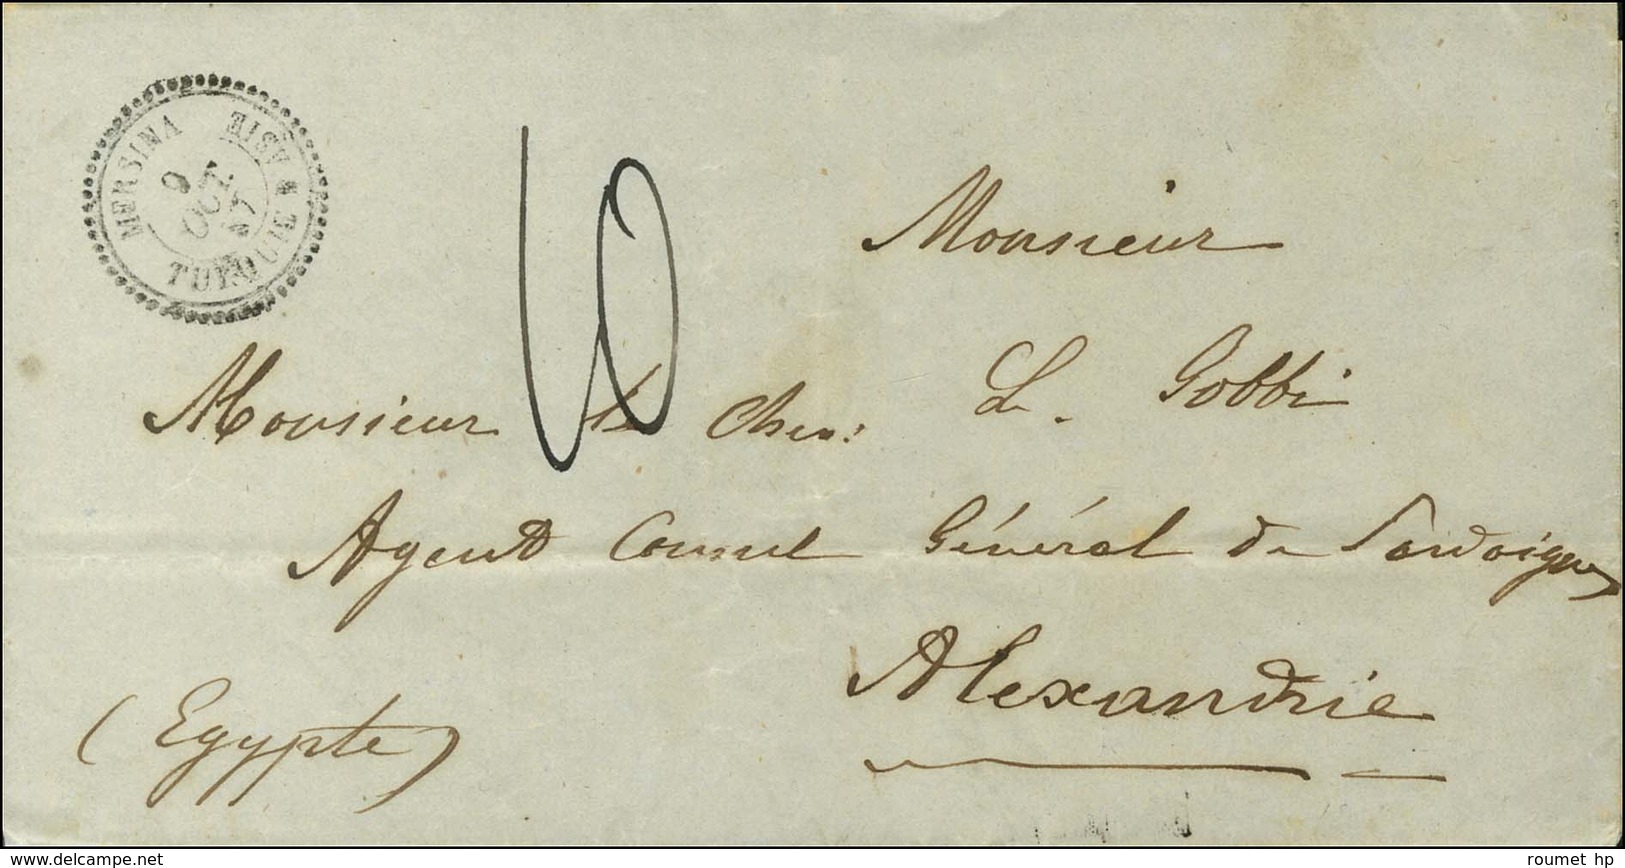 MERSINA
TURQUIE D'ASIE
9
OCT.
57
10
Monsieur
Monsieur le Chev: L. Gobbi
Agent Consul Général de Sardaigne
Alexandrie
(Egypte)
www.delcampe.net
roumet hp